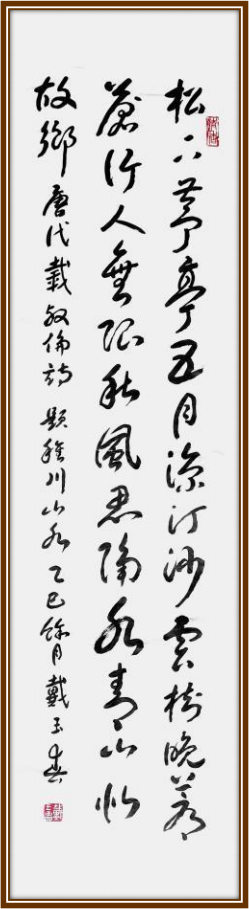 松下茅亭五月涼汀沙雲樹晚蒼
蒼行人無限秋風思隔水青山似
故鄉 唐代戴叔倫詩 題稚川山水 乙巳餘月戴玉春